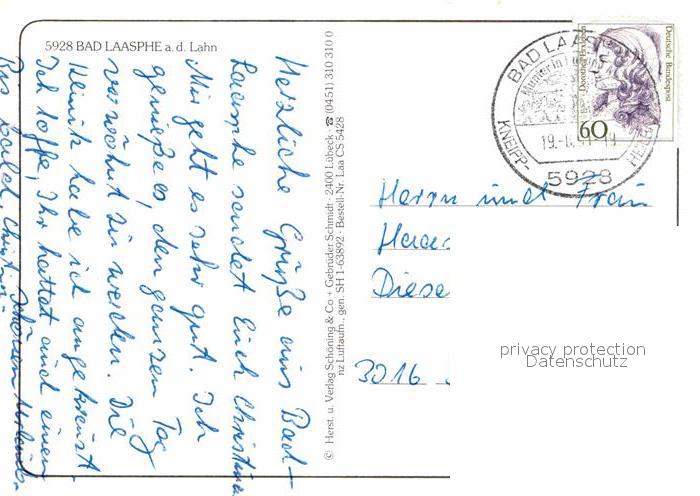 5928 BAD LAASPHE a. d. Lahn
Herzliche Grüße aus Bad-
Laasphe sendet Euch Christina
Mir geht es sehr gut. Ich
genieße es, den ganzen Tag
verwöhnt zu werden. Die
Klinik habe ich angekreuzt
Ich hoffe, Ihr hattet auch einen
schönen Urlaub.
Bis bald, Christina.
© Herst. u. Verlag Schöning & Co + Gebrüder Schmidt · 2400 Lübeck · ☎ (0451) 310 310 0
nz Luftaufn., gen. SH 1-63892 · Bestell-Nr. Laa CS 5428
BAD LAASPHE
Munter in
KNEIPP-
HEILB
19.-6.
5928
Deutsche Bundespost
60
Herrn und Frau
Haas
Diese
3016
privacy protection
Datenschutz